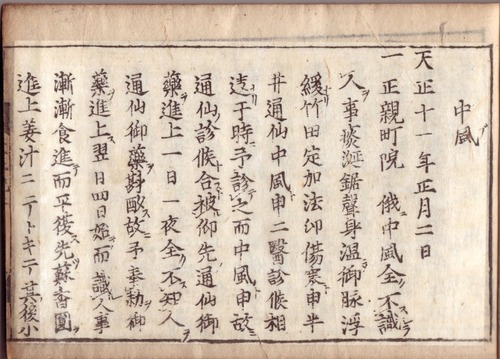 中風
天正十一年正月二日
一正親町院 俄中風全不識
人事痰涎鋸聲身温御脉浮
緩竹田定加法印傷寒申半
井通仙中風申二醫診候相
違于時予診之而中風申故
通仙診候合披仰先通仙御
藥進上一日一夜全不知人
通仙御藥斟酌故予奉勅御
藥進上翌日四日始而識人事
漸漸食進而平復先蘇香圓
進上姜汁ニテトキテ其後小